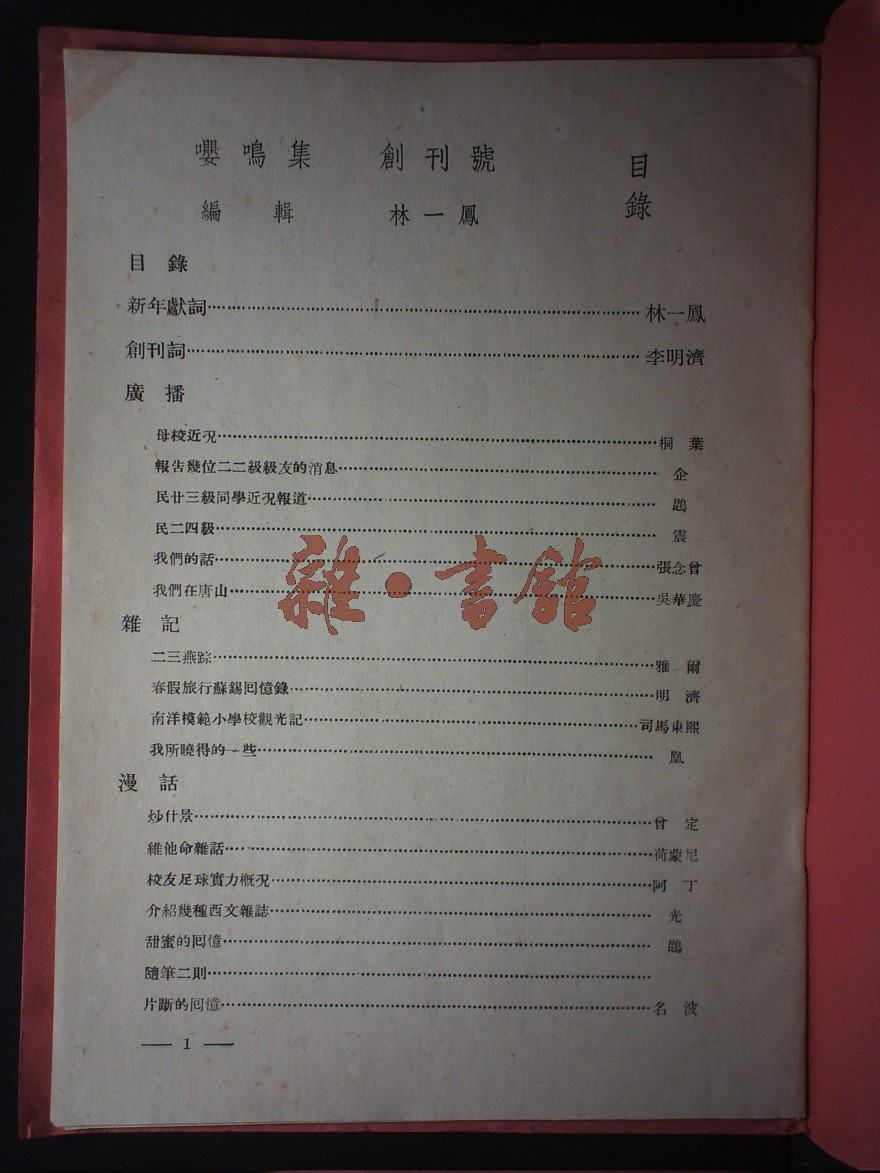 嚶鳴集 創刊號 目錄
編輯 林一鳳
目錄
新年獻詞⋯⋯林一鳳
創刊詞⋯⋯李明濟
廣播
母校近況⋯⋯桐葉
報告幾位二二級級友的消息⋯⋯企
民廿三級同學近況報道⋯⋯鵾
民二四級⋯⋯震
我們的話⋯⋯張念曾
我們在唐山⋯⋯吳華慶
雜記
二三燕踪⋯⋯雅爾
春假旅行蘇錫囘憶錄⋯⋯明濟
南洋模範小學校觀光記⋯⋯司馬東熙
我所曉得的一些⋯⋯凰
漫話
炒什景⋯⋯曾定
維他命雜話⋯⋯荷蒙尼
校友足球實力概況⋯⋯阿丁
介紹幾種西文雜誌⋯⋯光
甜蜜的囘憶⋯⋯鵾
隨筆二則⋯⋯
片斷的囘憶⋯⋯名波
— 1 —
雜·書館